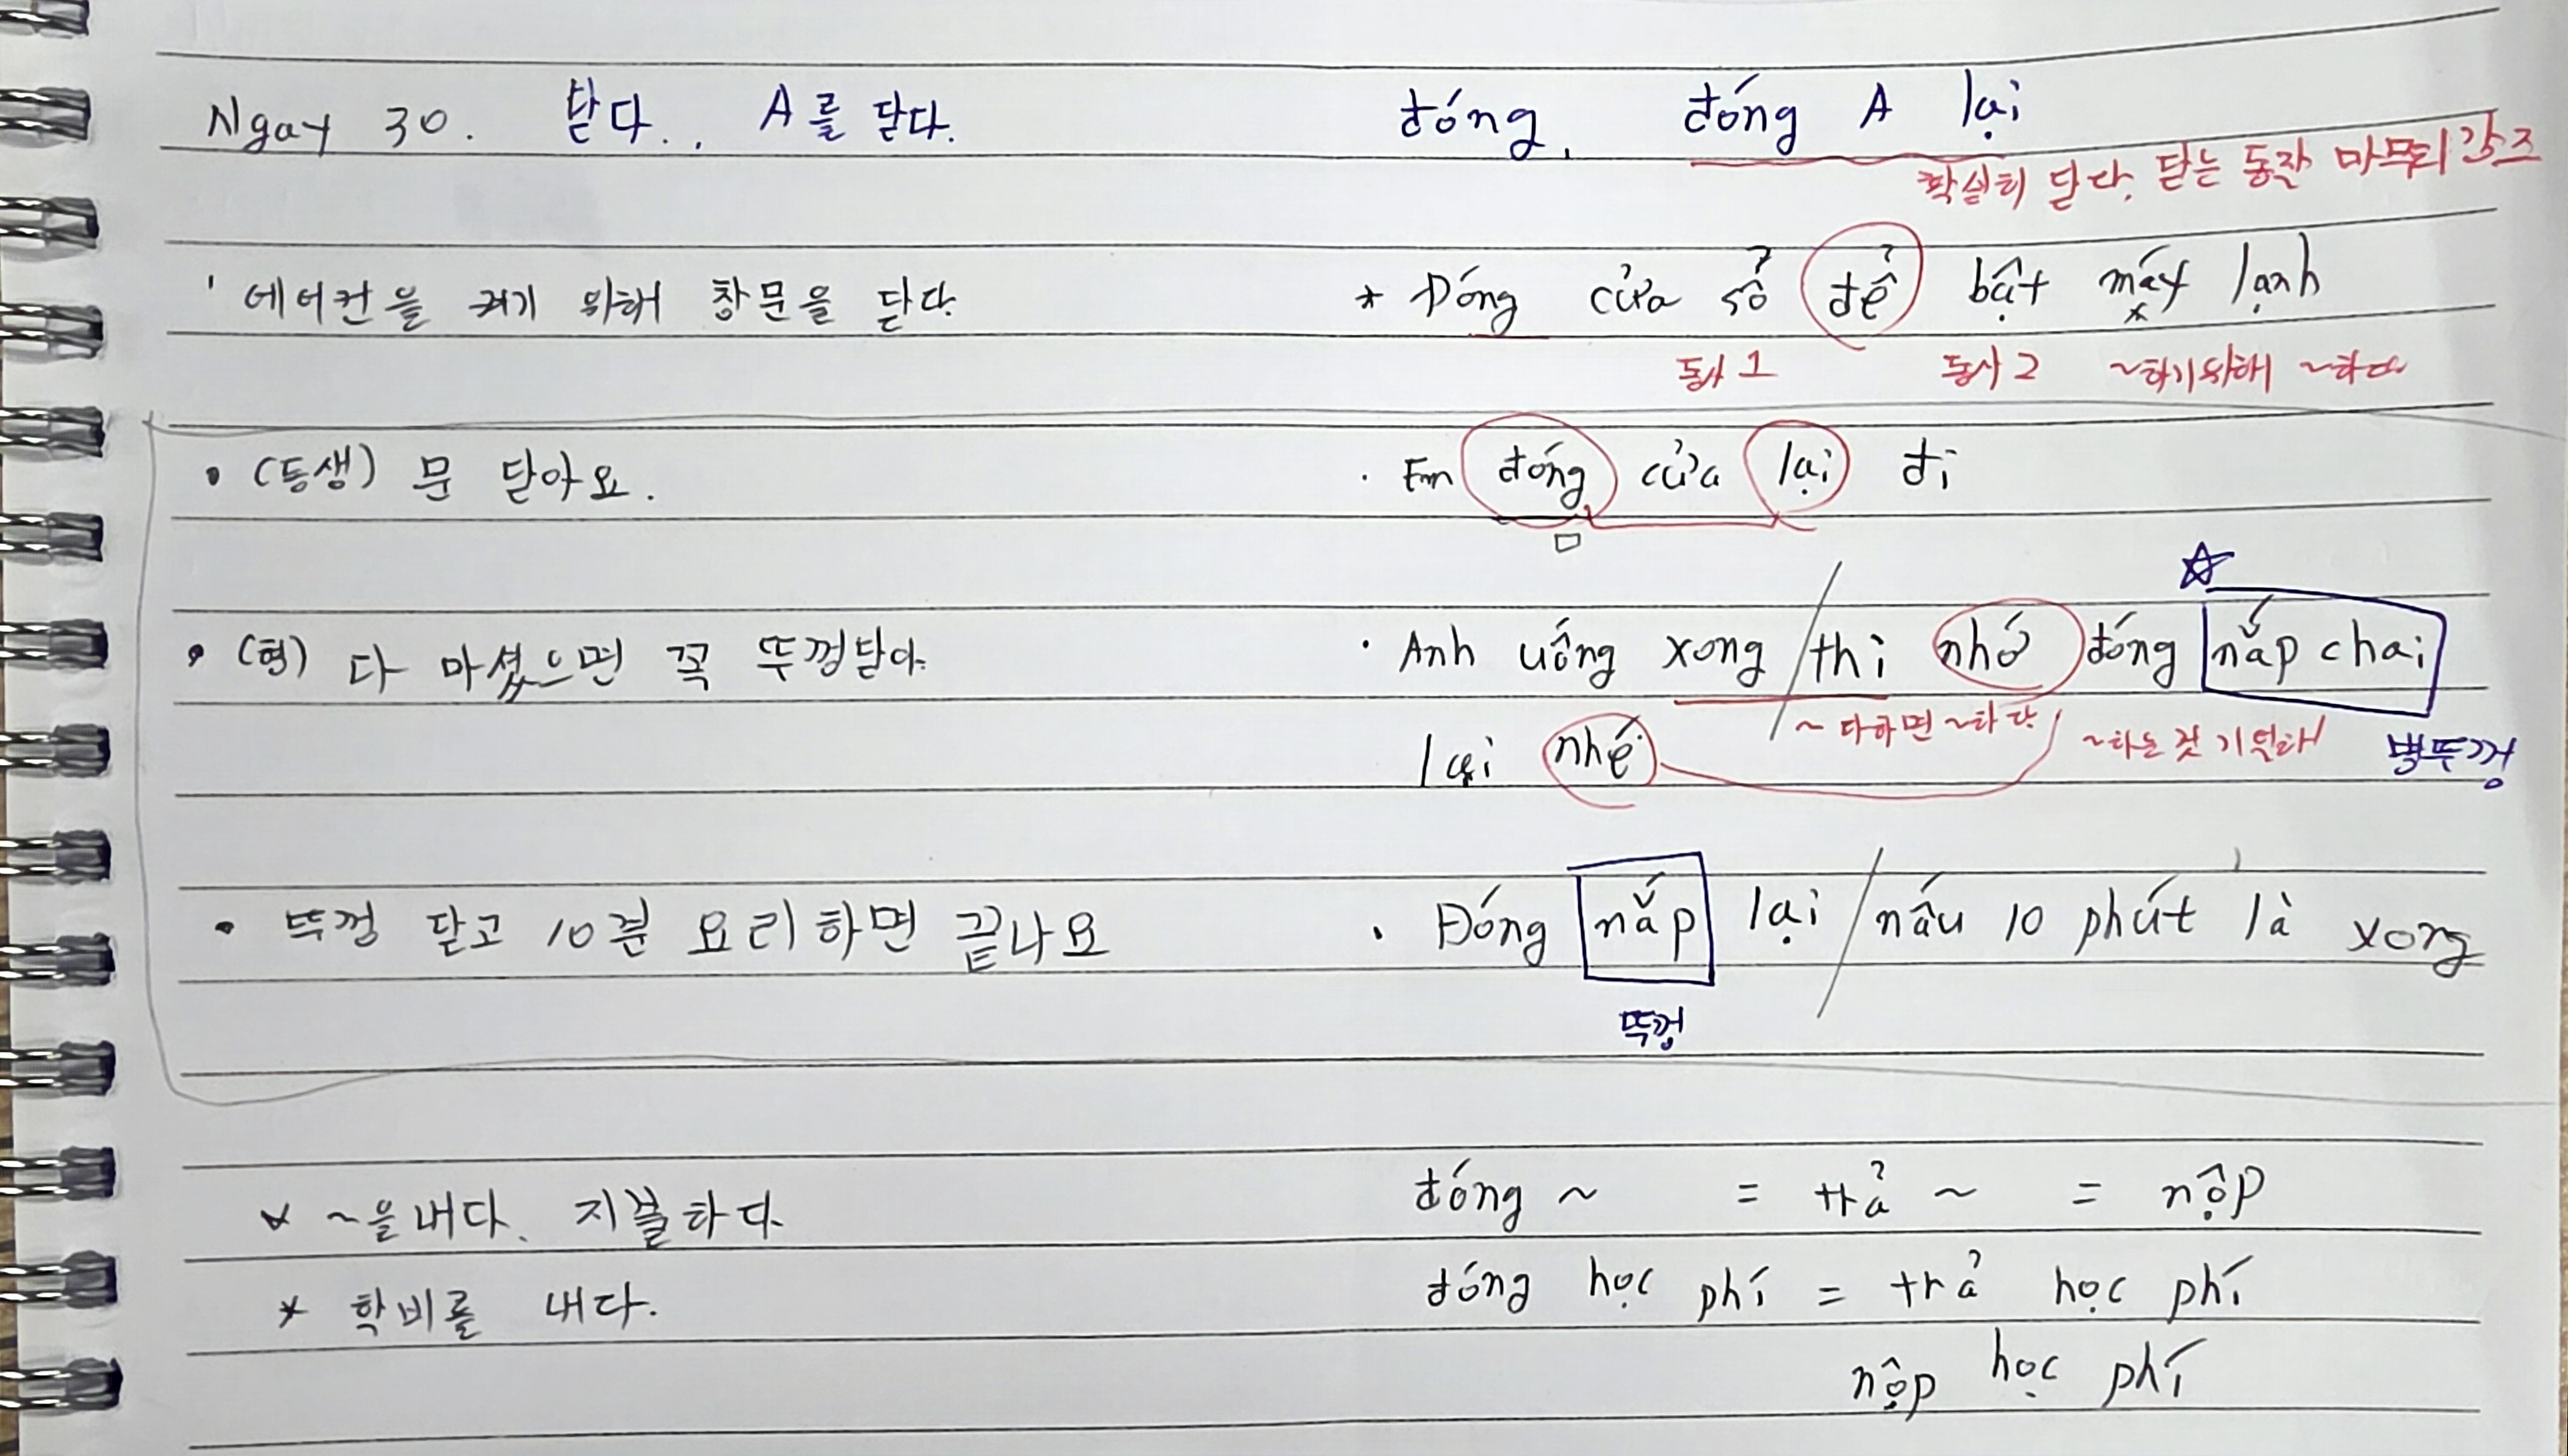 Ngay 30. 닫다., A를 닫다. đóng, đóng A lại
확실히 닫다, 닫는 동작 마무리 강조
' 에어컨을 켜기 위해 창문을 닫다 * Đóng cửa sổ để bật máy lạnh
동사 1 동사 2 ~하기위해 ~하다
• (동생) 문 닫아요. · Em đóng cửa lại đi
• (형) 다 마셨으면 꼭 뚜껑닫아. · Anh uống xong / thì nhớ đóng nắp chai
lại nhé ~다하면 ~하다 ~하는것 기억해 병뚜껑
• 뚜껑 닫고 10분 요리하면 끝나요 · Đóng nắp lại / nấu 10 phút là xong
뚜껑
* ~을 내다. 지불하다 đóng ~ = trả ~ = nộp
* 학비를 내다. đóng học phí = trả học phí
nộp học phí